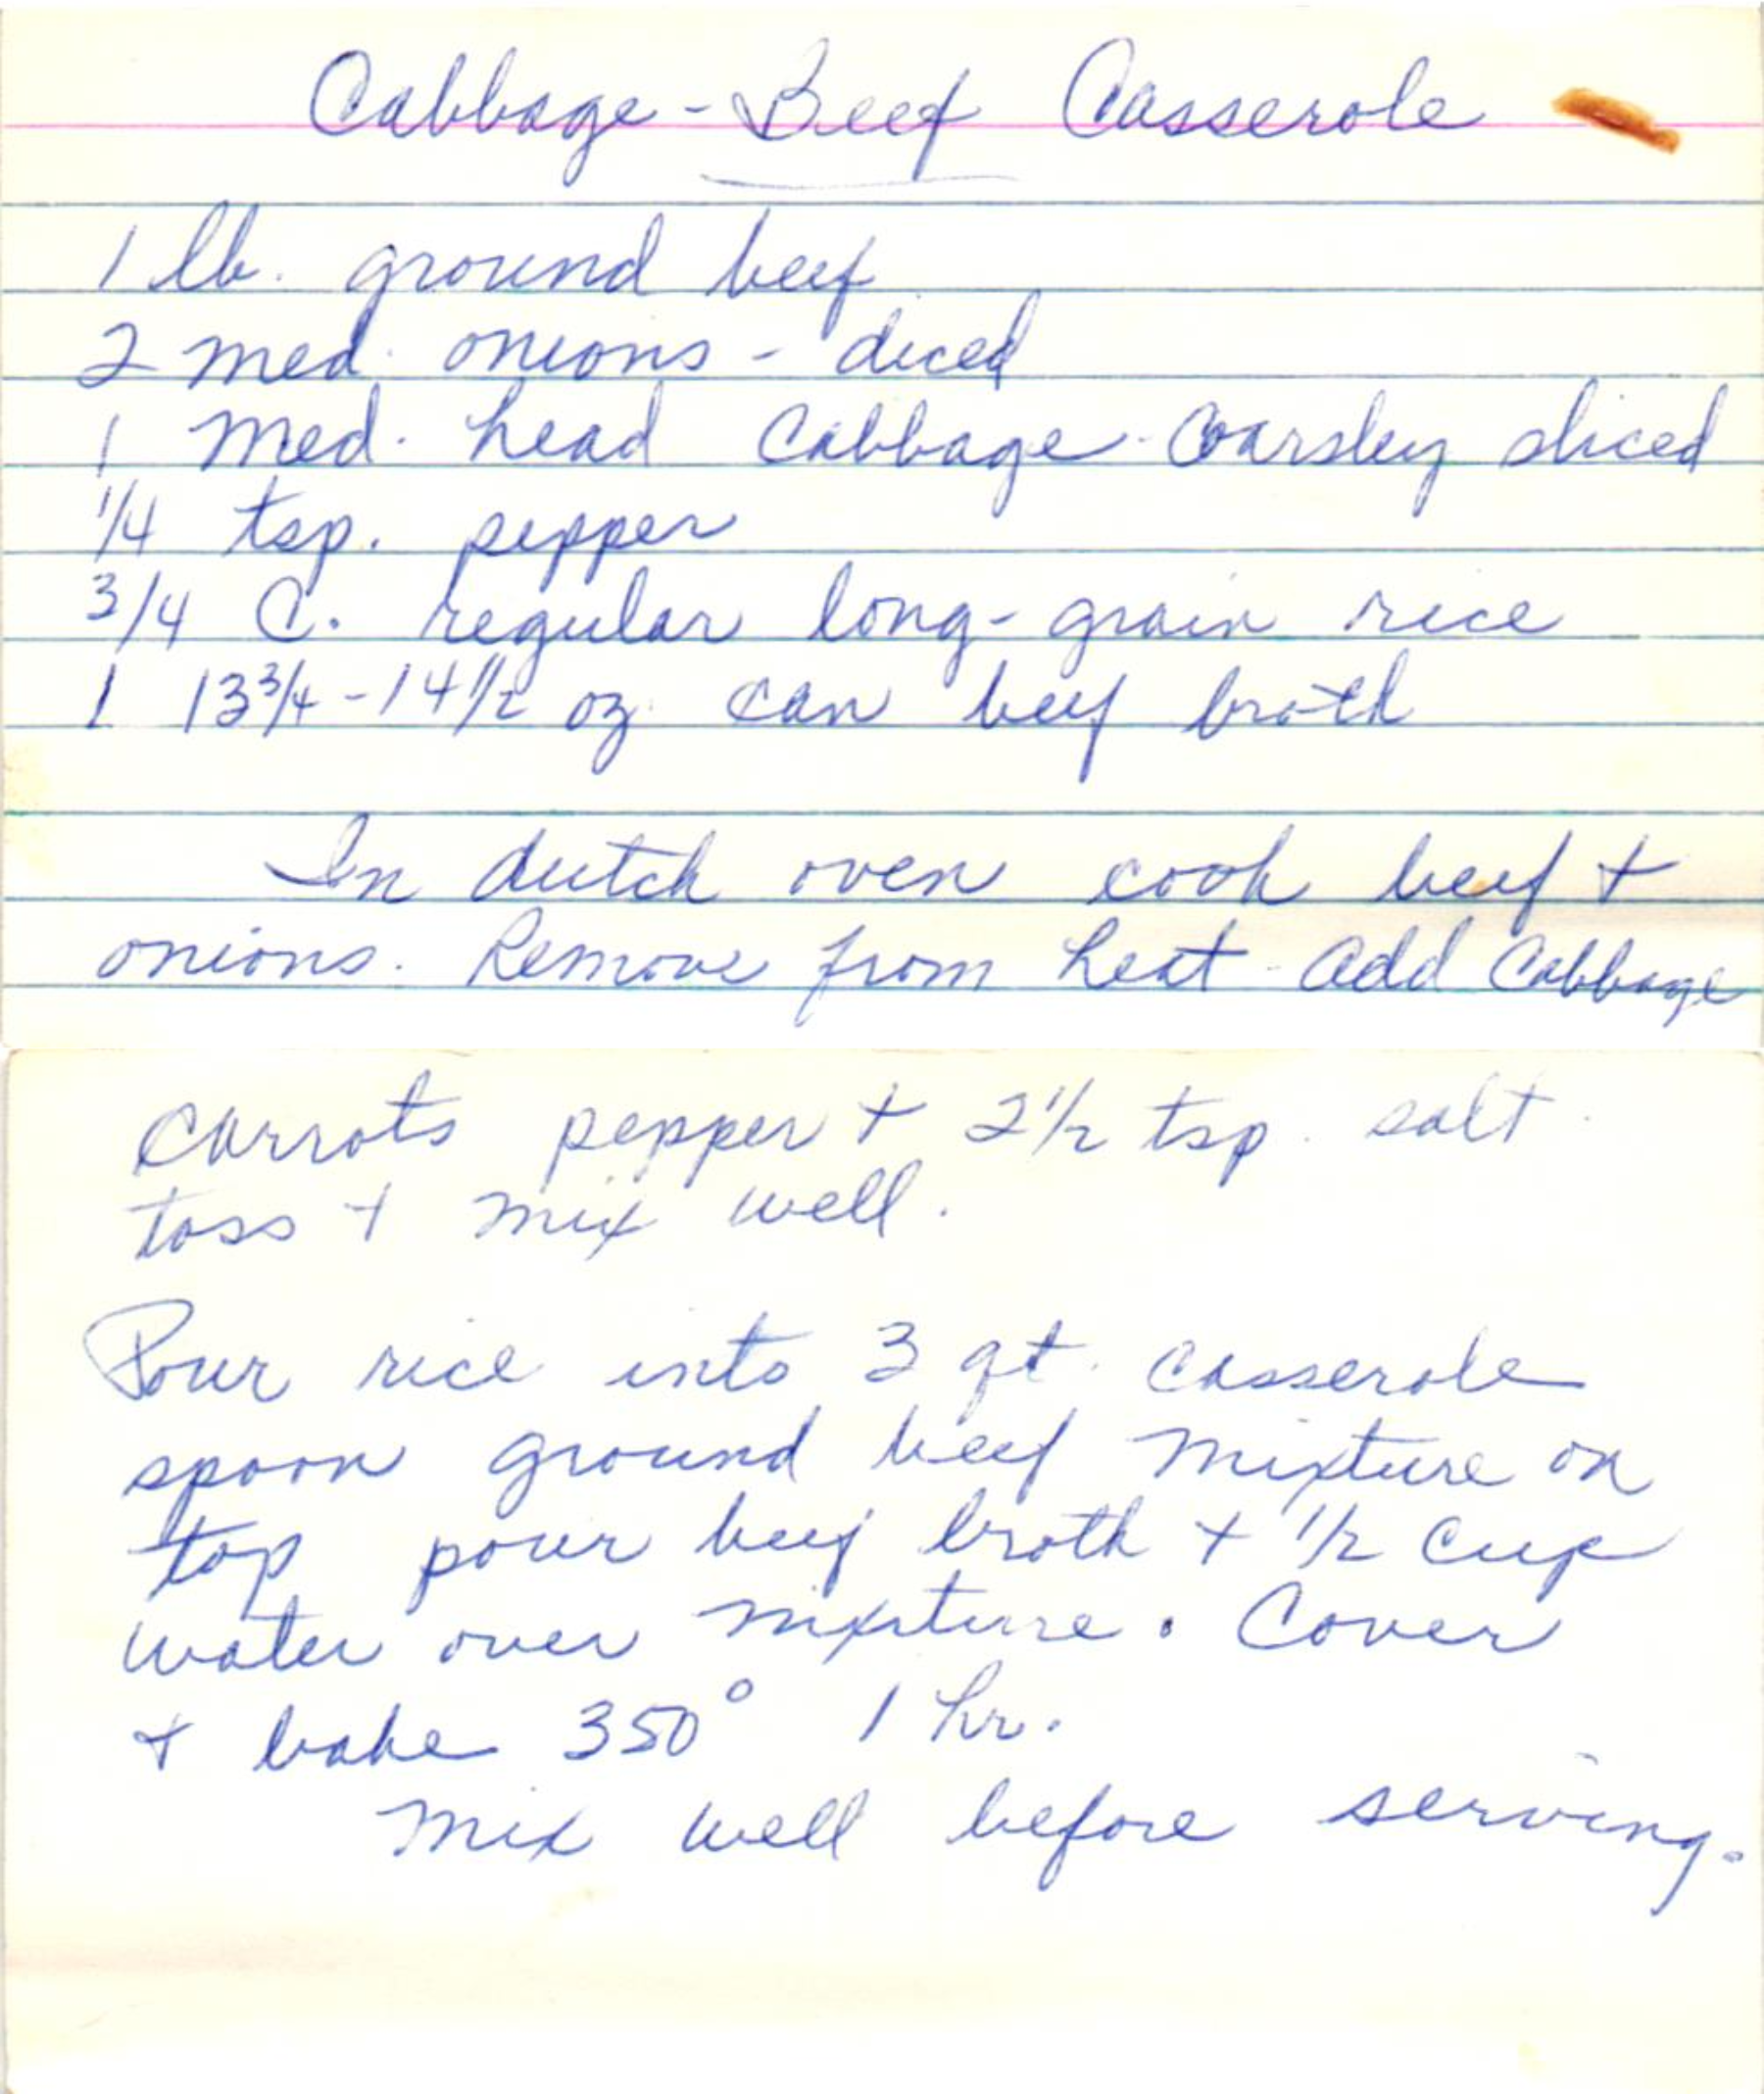 Cabbage - Beef Casserole
1 lb. ground beef
2 med. onions - diced
1 med. head cabbage - coarsley sliced
1/4 tsp. pepper
3/4 C. regular long-grain rice
1 13 3/4 - 14 1/2 oz. can beef broth
In dutch oven cook beef +
onions. Remove from heat - add cabbage
carrots pepper + 2 1/2 tsp. salt
toss + mix well.
Pour rice into 3 qt. casserole
spoon ground beef mixture on
top pour beef broth + 1/2 cup
water over mixture. Cover
+ bake 350° 1 hr.
Mix well before serving.